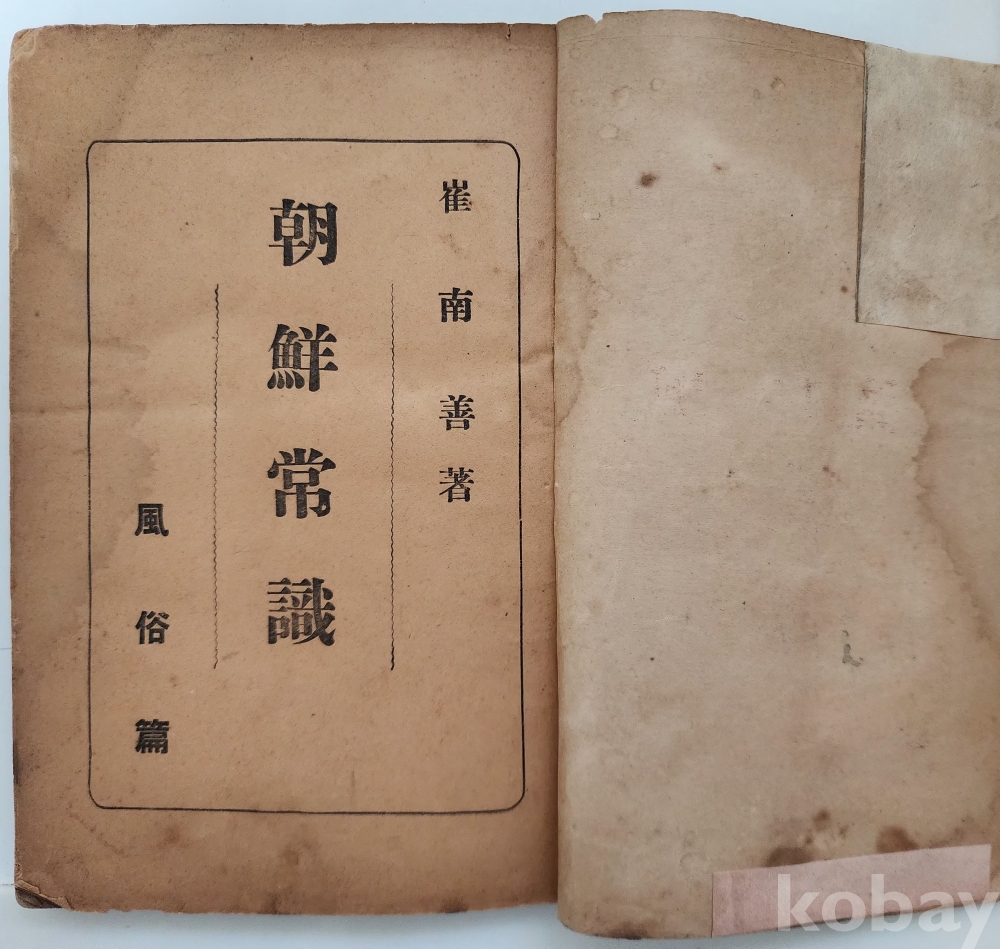 崔南善著
朝鮮常識
風俗篇
kobay